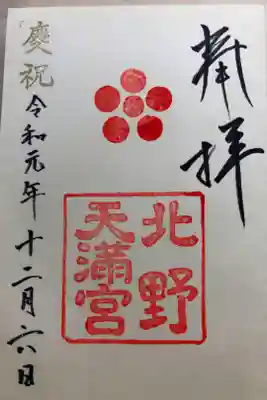 奉拝
北野
天満宮
慶祝 令和元年 十二月六日